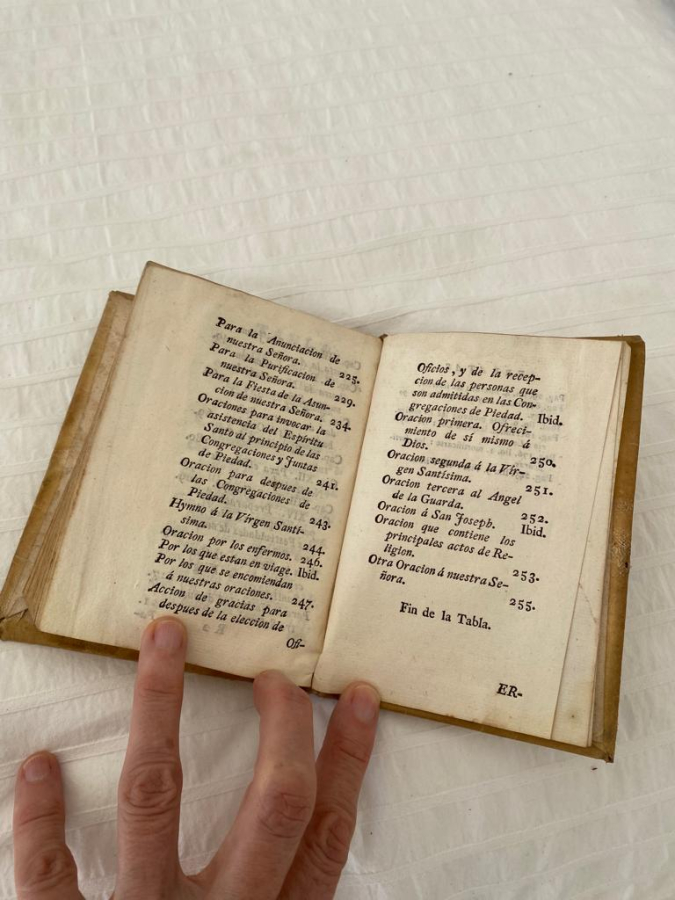 Para la Anunciacion de
nuestra Señora. 225.
Para la Purificacion de
nuestra Señora. 229.
Para la Fiesta de la Asun-
cion de nuestra Señora. 234.
Oraciones para invocar la
asistencia del Espíritu
Santo al principio de las
Congregaciones y Juntas
de Piedad. 241.
Oracion para despues de
las Congregaciones de
Piedad. 243.
Hymno á la Vírgen Santí-
sima. 244.
Oracion por los enfermos. 246.
Por los que estan en viage. Ibid.
Por los que se encomiendan
á nuestras oraciones. 247.
Accion de gracias para
despues de la eleccion de
Ofi-
Oficios, y de la recep-
cion de las personas que
son admitidas en las Con-
gregaciones de Piedad. Ibid.
Oracion primera. Ofreci-
miento de sí mismo á
Dios. 250.
Oracion segunda á la Vír-
gen Santísima. 251.
Oracion tercera al Angel
de la Guarda. 252.
Oracion á San Joseph. Ibid.
Oracion que contiene los
principales actos de Re-
ligion. 253.
Otra Oracion á nuestra Se-
ñora. 255.
Fin de la Tabla.
ER-